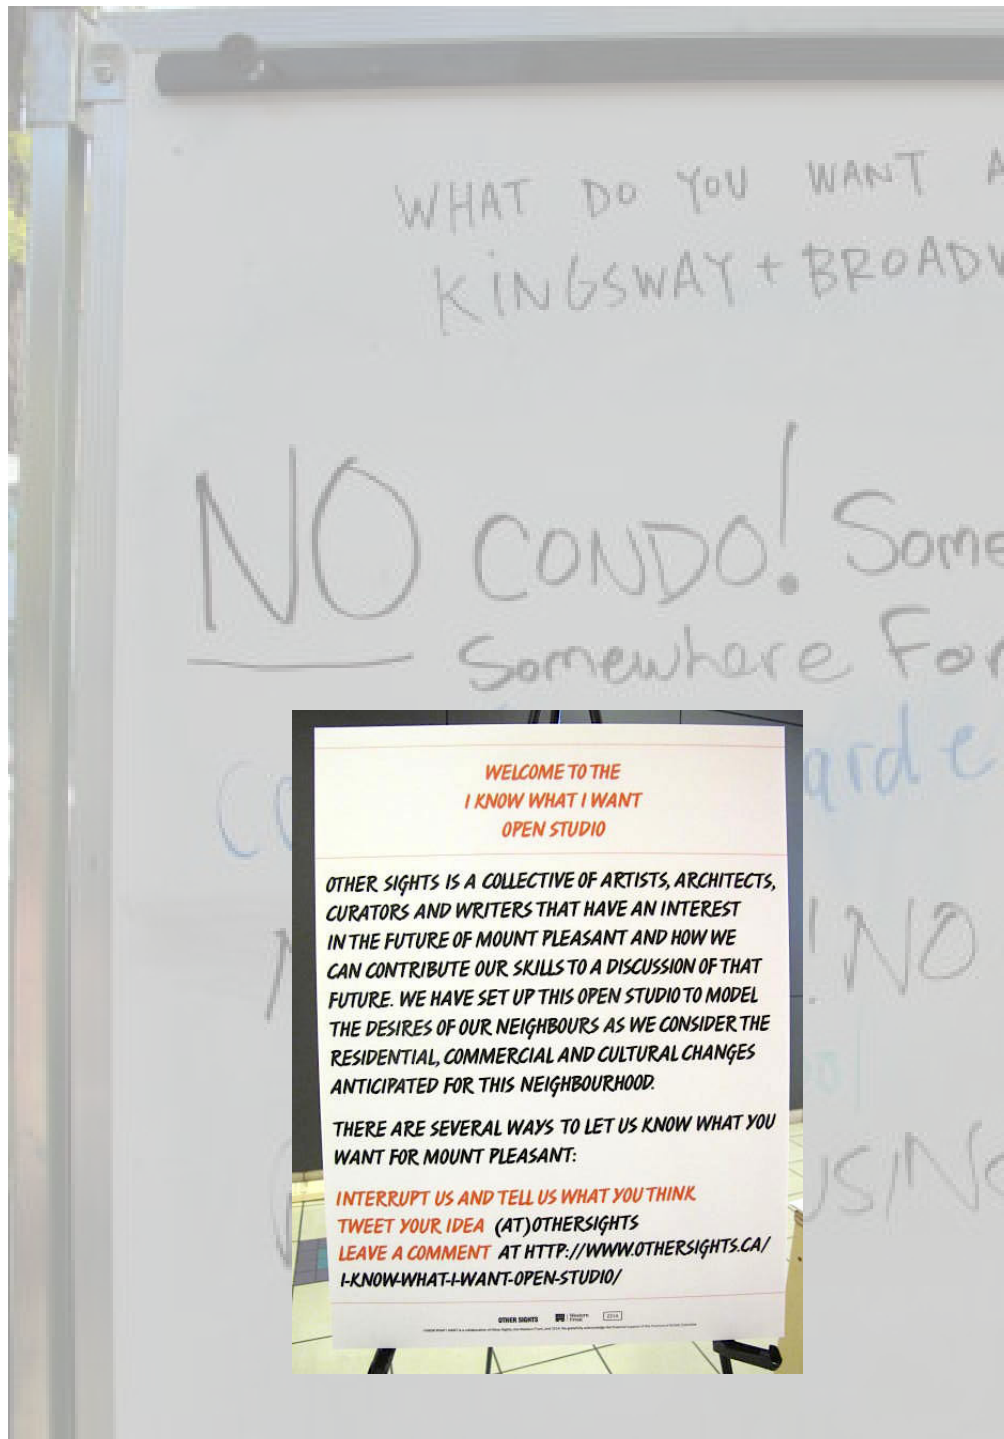 WHAT DO YOU WANT
KINGSWAY + BROADW
NO CONDO! Some
Somewhere For
ard e
! NO
US/NO
WELCOME TO THE
I KNOW WHAT I WANT
OPEN STUDIO
OTHER SIGHTS IS A COLLECTIVE OF ARTISTS, ARCHITECTS,
CURATORS AND WRITERS THAT HAVE AN INTEREST
IN THE FUTURE OF MOUNT PLEASANT AND HOW WE
CAN CONTRIBUTE OUR SKILLS TO A DISCUSSION OF THAT
FUTURE. WE HAVE SET UP THIS OPEN STUDIO TO MODEL
THE DESIRES OF OUR NEIGHBOURS AS WE CONSIDER THE
RESIDENTIAL, COMMERCIAL AND CULTURAL CHANGES
ANTICIPATED FOR THIS NEIGHBOURHOOD.
THERE ARE SEVERAL WAYS TO LET US KNOW WHAT YOU
WANT FOR MOUNT PLEASANT:
INTERRUPT US AND TELL US WHAT YOU THINK
TWEET YOUR IDEA (AT)OTHERSIGHTS
LEAVE A COMMENT AT HTTP://WWW.OTHERSIGHTS.CA/
I-KNOW-WHAT-I-WANT-OPEN-STUDIO/
OTHER SIGHTS Western Front